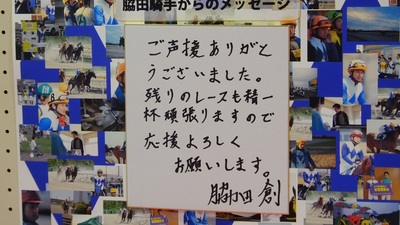 脇田騎手からのメッセージ
ご声援ありがと
うございました。
残りのレースも精一
杯頑張りますので
応援よろしく
お願いします。
脇田創